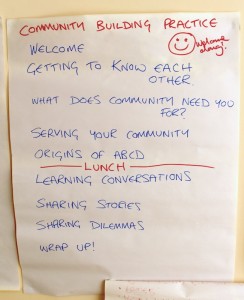 COMMUNITY BUILDING PRACTICE
WELCOME
GETTING TO KNOW EACH
OTHER.
WHAT DOES COMMUNITY NEED YOU
FOR?
SERVING YOUR COMMUNITY
ORIGINS OF ABCD
LUNCH
LEARNING CONVERSATIONS
SHARING STORIES
SHARING DILEMMAS
WRAP UP!